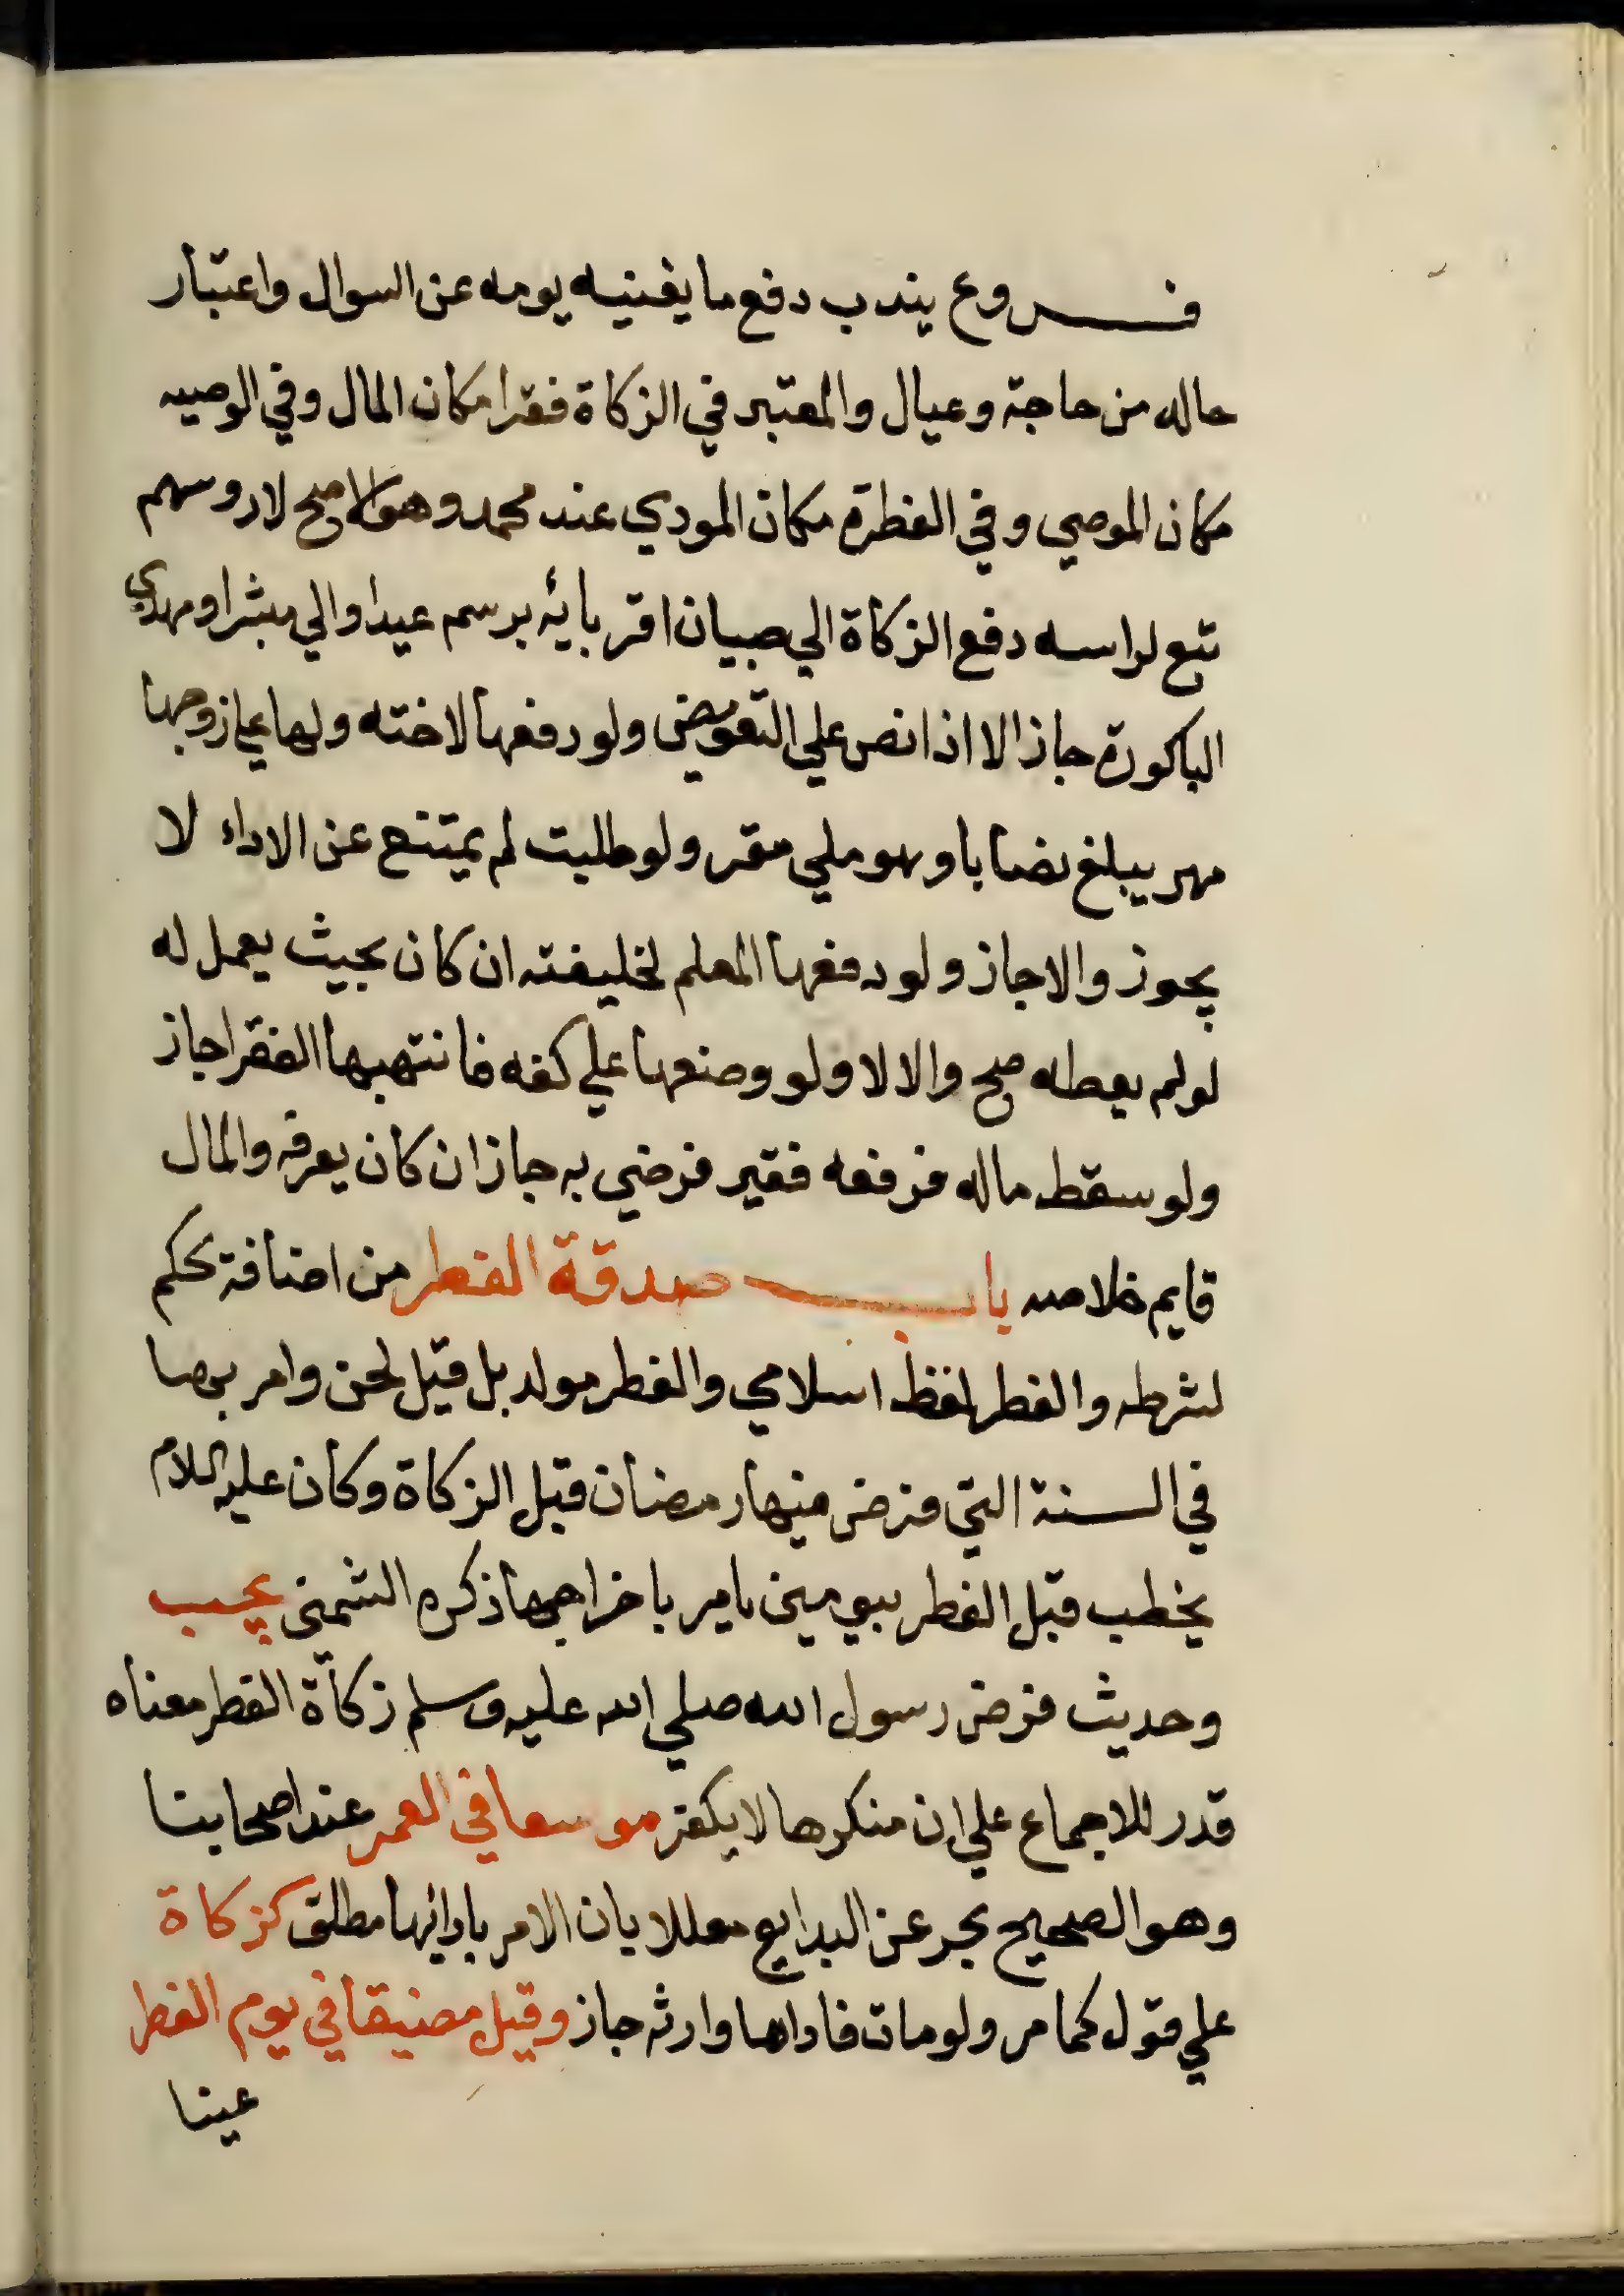 فروع يندب دفع ما يغنيه يومه عن السوال واعتبار
حاله من حاجة وعيال والمعتبر في الزكاة فقرا مكان المال وفي الوصيه
مكان الموصي وفي الفطرة مكان المودي عند محمد وهو الاصح لان روسهم
تبع لراسه دفع الزكاة الي صبيان اقربائه برسم عيد او الي مبشر او مهدي
الباكورة جاز الا اذا نص علي التعويض ولو دفعها لاخته ولها علي زوجها
مهر يبلغ نصابا وهو ملي مقر ولو طلبت لم يمتنع عن الاداء لا
يجوز والا جاز ولو دفعها المعلم لخليفته ان كان بحيث يعمل له
لو لم يعطه صح والا لا ولو وضعها علي كفه فانتهبها الفقرا جاز
ولو سقط ماله فرفعه فقير فرضي به جاز ان كان يعرفه والمال
قايم خلاصه باب صدقة الفطر من اضافة الحكم
لشرطه والفطر لفظ اسلامي والفطر مولد بل قيل لحن وامر بها
في السنة التي فرض فيها رمضان قبل الزكاة وكان عليه السلام
يخطب قبل الفطر بيومين يامر باخراجها ذكره الشمني يجب
وحديث فرض رسول الله صلي الله عليه وسلم زكاة الفطر معناه
قدر للاجماع علي ان منكرها لا يكفر موسعا في العمر عند اصحابنا
وهو الصحيح بحر عن البدايع معللا بان الامر بادائها مطلق كزكاة
علي قول كما مر ولو مات فاداها وارثه جاز وقيل مضيقا في يوم الفطر
عينا